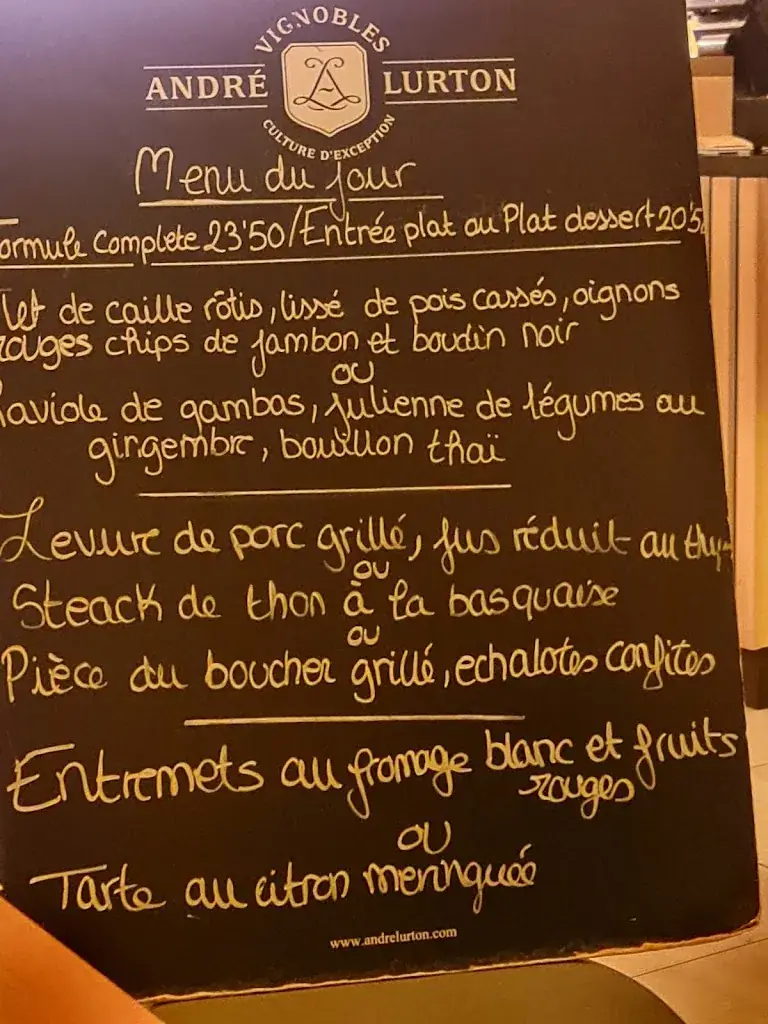 VIGNOBLES
ANDRÉ LURTON
CULTURE D'EXCEPTION
Menu du jour
ormule Complete 23'50/Entrée plat ou Plat dessert 20'5
let de caille rôtis, lissé de pois cassés, oignons
rouges chips de jambon et boudin noir
ou
Raviole de gambas, julienne de légumes au
gingembre, bouillon thaï
Levure de porc grillé, jus réduit au thy
ou
Steack de thon à la basquaise
ou
Pièce du boucher grillé, echalotes confites
Entremets au fromage blanc et fruits
rouges
ou
Tarte au citron meringuée
www.andrelurton.com